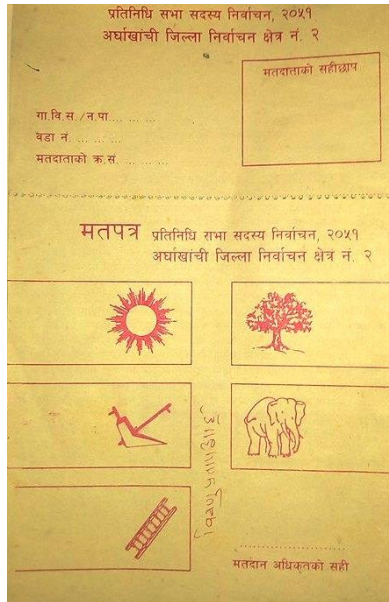 प्रतिनिधि सभा सदस्य निर्वाचन, २०५१
अर्घाखांची जिल्ला निर्वाचन क्षेत्र नं. २
मतदाताको सहीछाप
गा.वि.स./न.पा.... ... ...
वडा नं. ... ... ...
मतदाताको क्र.सं. ... ... ...
मतपत्र प्रतिनिधि सभा सदस्य निर्वाचन, २०५१
अर्घाखांची जिल्ला निर्वाचन क्षेत्र नं. २
मतदान अधिकृतको सही